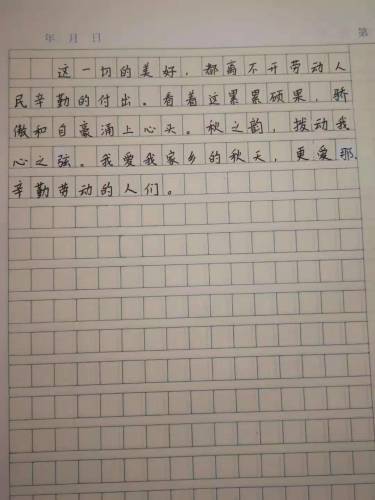 年 月 日 第
这一切的美好，都离不开劳动人
民辛勤的付出。看着这累累硕果，骄
傲和自豪涌上心头。秋之韵，拨动我
心之弦。我爱我家乡的秋天，更爱那
辛勤劳动的人们。